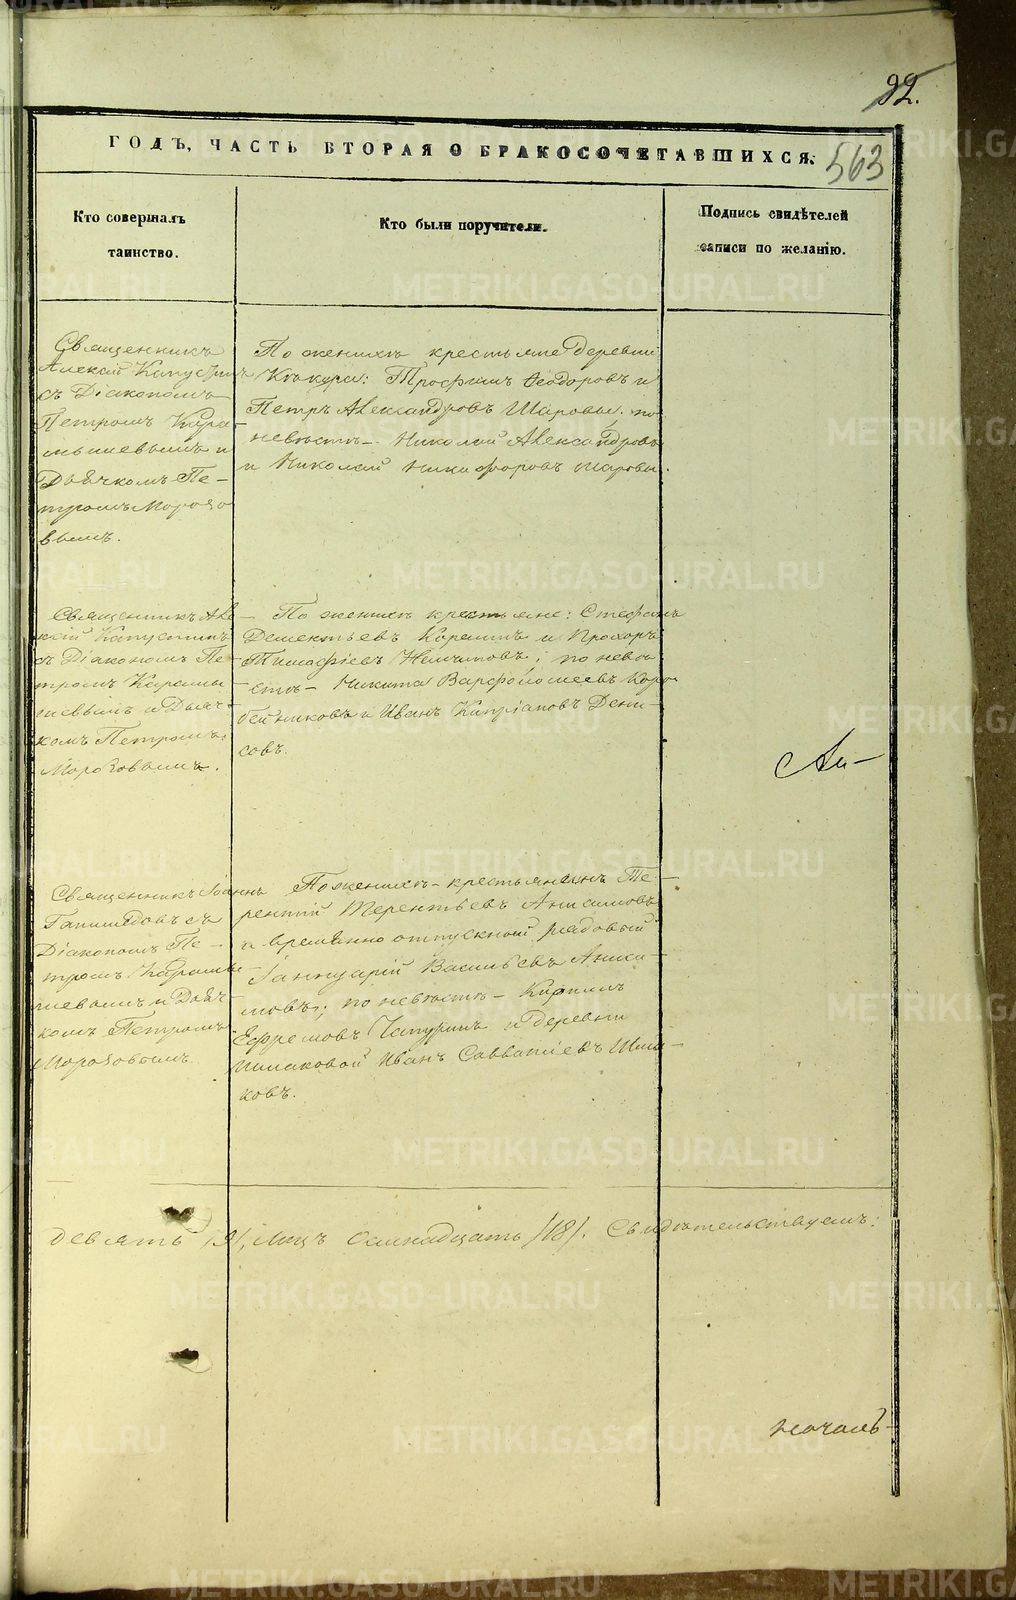 92.
563
ГОДЪ, ЧАСТЬ ВТОРАЯ О БРАКОСОЧЕТАВШИХСЯ.
Кто совершалъ
таинство.
Кто были поручители.
Подпись свидѣтелей
записи по желанію.
Священникъ
Алексій Капустинъ
съ Діакономъ
Петромъ Кара-
мышевымъ и
Дьячкомъ Пе-
тромъ Морозо
вымъ.
По женихѣ крестьяне деревни
Трофимъ Ѳеодоровъ и
Петръ Александровъ Шаровы. по
невѣстѣ - Николай Александровъ
и Николай Никифоровъ Шаровы.
Священникъ Але
ксій Капустинъ
съ Діакономъ Пе-
тромъ Карамы
шевымъ и Дьяч-
комъ Петромъ
Морозовымъ.
По женихѣ крестьяне: Стефанъ
Дементьевъ и Прохоръ
Тимофіевъ по невѣ
стѣ - Никита Варфоломеевъ Коро
бейниковъ и Иванъ Кипріановъ Дени-
совъ.
Ан-
Священникъ Іоаннъ
съ
Діакономъ Пе-
тромъ Карамы
шевымъ и Дьяч
комъ Петромъ
Морозовымъ
По женихѣ - крестьянинъ Те-
рентій Терентьевъ Анисимовъ
и временно отпускной рядовый
Іаннуарій Васильевъ Аниси-
мовъ; по невѣстѣ - Кирилъ
Ефремовъ Чапуринъ и деревни
Шмаковой Иванъ Савватіевъ Шма-
ковъ.
девять /9/, лицъ осмнадцать /18/. Свидѣтельствуемъ:
METRIKI.GASO-URAL.RU